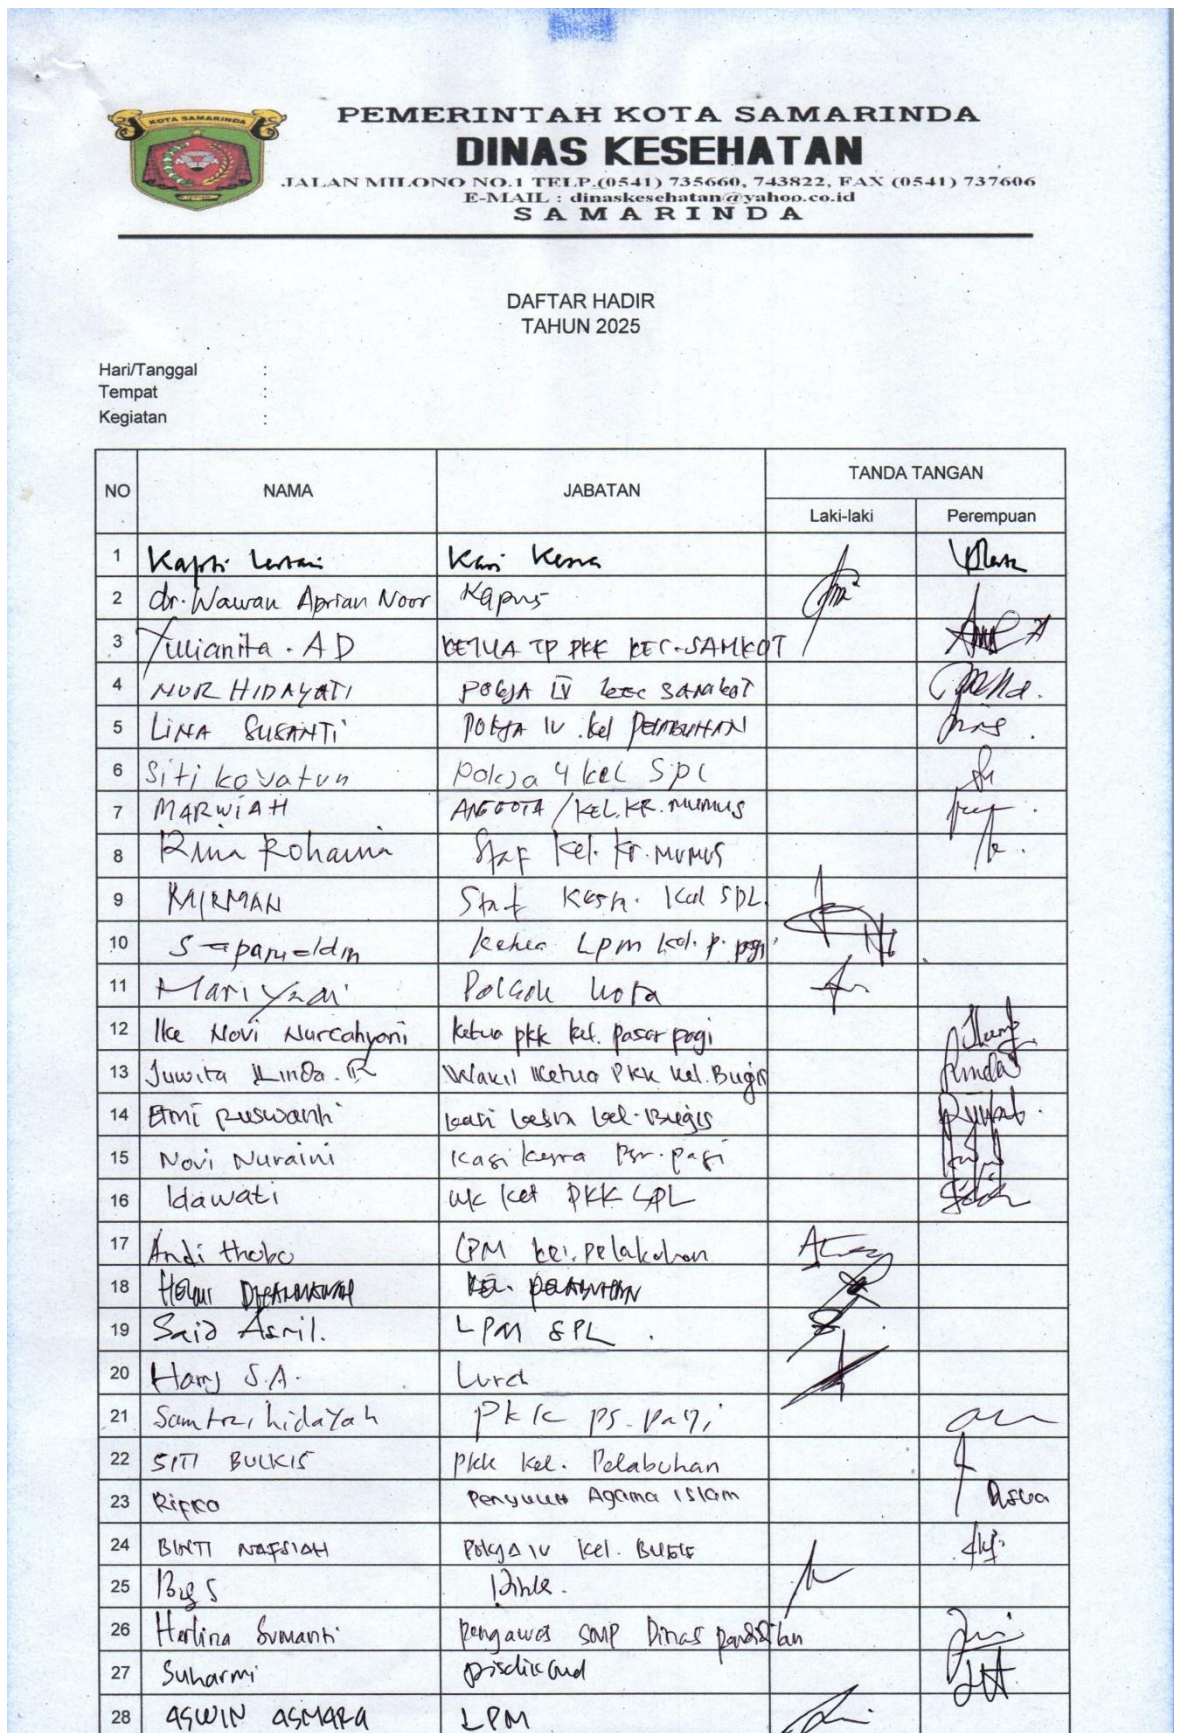 KOTA SAMARINDA
PEMERINTAH KOTA SAMARINDA
DINAS KESEHATAN
JALAN MILONO NO.1 TELP.(0541) 735660, 743822, FAX (0541) 737606
E-MAIL : dinaskesehatan@yahoo.co.id
SAMARINDA
DAFTAR HADIR
TAHUN 2025
Hari/Tanggal :
Tempat :
Kegiatan :
NO NAMA JABATAN TANDA TANGAN
Laki-laki Perempuan
1 Kapti Lestari Kasi Kesra
2 dr. Wawan Aprian Noor Kapus
3 Yulianita . AD KETUA TP PKK KEC. SAMKOT
4 NUR HIDAYATI POKJA IV kec SAMKOT
5 LINA SUSANTI POKJA IV . kel PELABUHAN
6 Siti kovatun Pokja 4 kel SPL
7 MARWIAH ANGGOTA / KEL. KR. MUMUS
8 Rina Rohaina Staf kel. kr. MUMUS
9 MIRMAN Staf Kesra. Kel SPL.
10 Ketua LPM kel. p. pagi
11 Mariyadi kota
12 Ike Novi Nurcahyani Ketua pkk kel. pasar pagi
13 Juwita Linda . R Wakil Ketua PKK kel. Bugis
14 Etmi Ruswanti kasi kesra kel. Bugis
15 Novi Nuraini Kasi kesra Psr. pagi
16 Idawati wk ket PKK SPL
17 Andi LPM kel. pelabuhan
18 KEL. PELABUHAN
19 Said Asril. LPM SPL .
20 Hary S.A. Lurah
21 hidayah PKK ps. pagi
22 SITI BULKIS PKK Kel. Pelabuhan
23 Agama Islam
24 BINTI NAFSIAH Pokja IV kel. BUGIS
25
26 Herlina Sumanti Pengawas SMP Dinas pendidikan
27 Suharmi Disdikbud
28 ASWIN ASMARA LPM